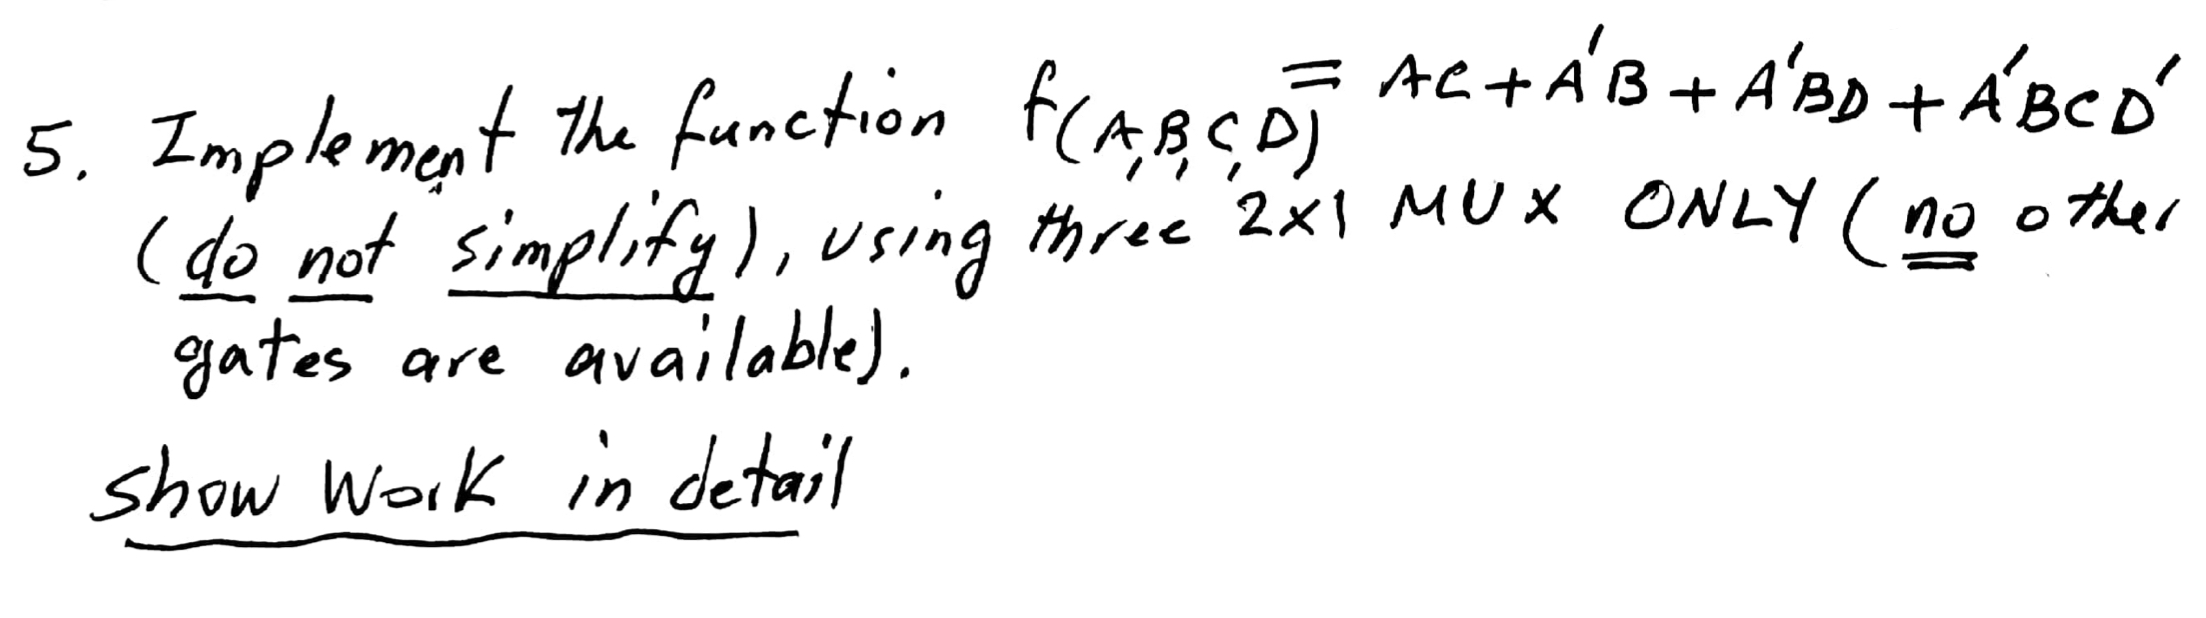 5. Implement the function f(A,B,C,D) = AC + A'B + A'BD + A'BCD'
(do not simplify), using three 2x1 MUX ONLY (no other
gates are available).
show work in detail